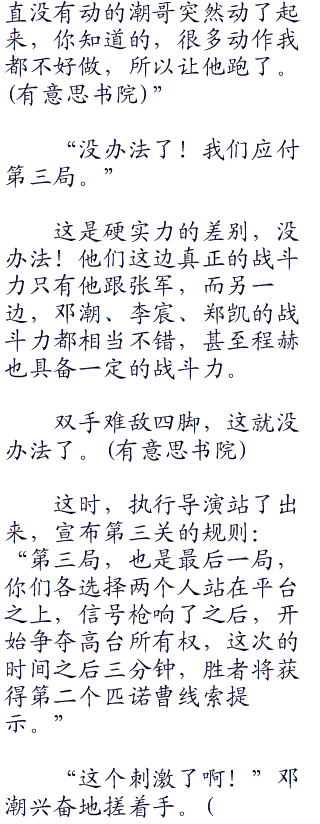 直没有动的潮哥突然动了起
来，你知道的，很多动作我
都不好做，所以让他跑了。
(有意思书院)”
“没办法了！我们应付
第三局。”
这是硬实力的差别，没
办法！他们这边真正的战斗
力只有他跟张军，而另一
边，邓潮、李宸、郑凯的战
斗力都相当不错，甚至程赫
也具备一定的战斗力。
双手难敌四脚，这就没
办法了。(有意思书院)
这时，执行导演站了出
来，宣布第三关的规则：
“第三局，也是最后一局，
你们各选择两个人站在平台
之上，信号枪响了之后，开
始争夺高台所有权，这次的
时间之后三分钟，胜者将获
得第二个匹诺曹线索提
示。”
“这个刺激了啊！”邓
潮兴奋地搓着手。(